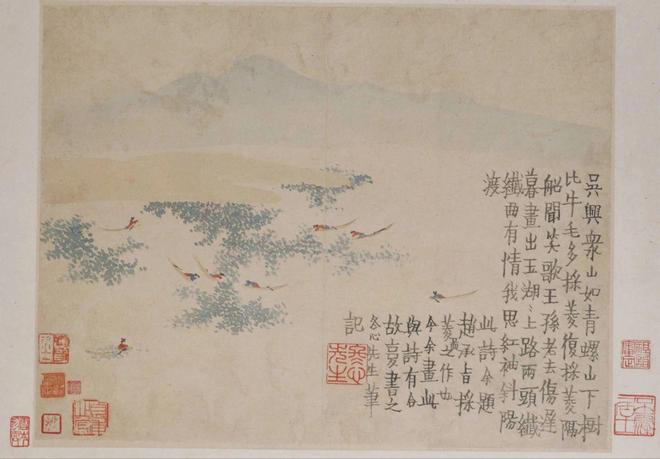 吳興衆山如青螺山下樹
比牛毛多採菱復採菱隔
船聞笑歌王孫老去傷遲
暮畫出玉湖〻上路兩頭纖
纖曲有情我思紅袖斜陽
渡
此詩余題
趙承旨採
菱之作也
今余畫此
與詩有合
故复書之
冬心先生筆
記
冬心先生